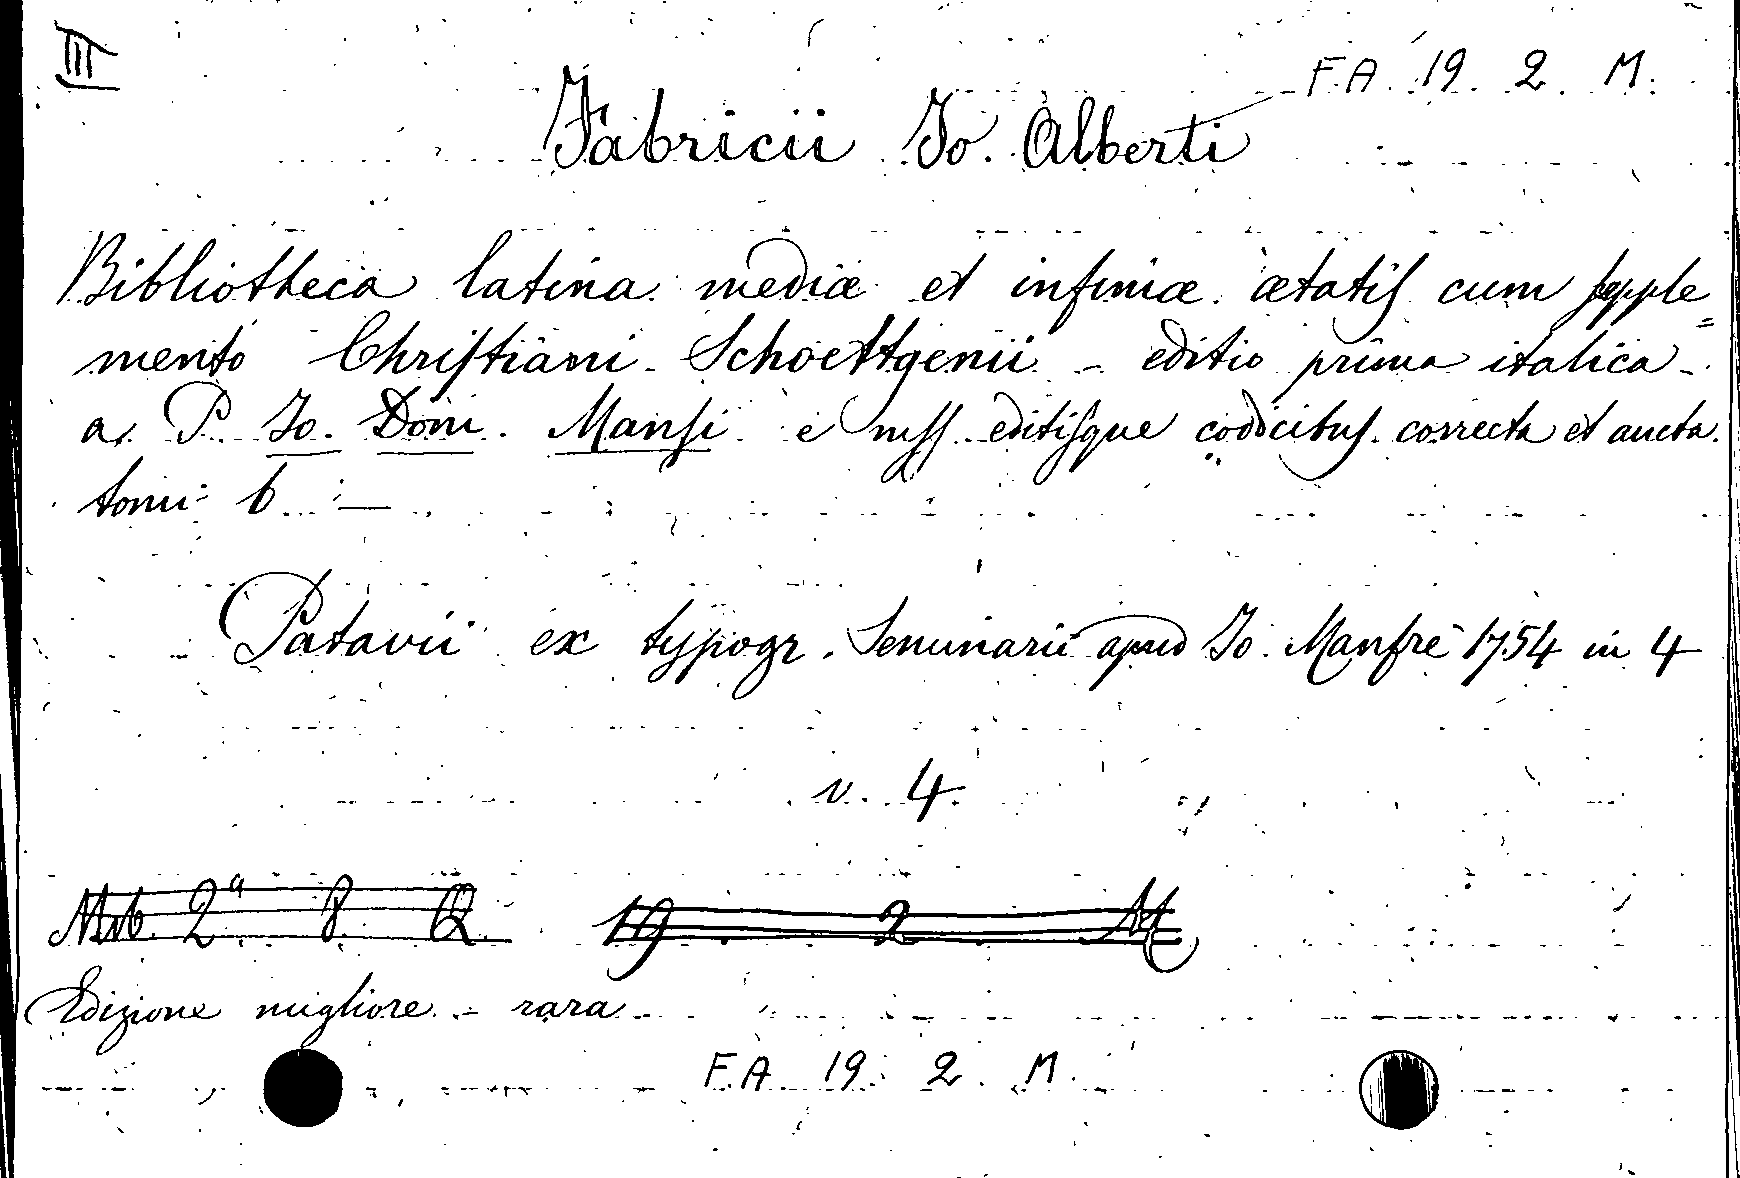 III
F.A. 19. 2. M.
Fabricii Jo. Alberti
Bibliotheca latina mediæ et infimæ ætatis cum supple=
mento Christiani Schoettgenii - editio prima italica -
a P. Jo. Dom. Mansi e mss. editisque codicibus correcta et aucta.
tomi 6 -
Patavii ex typogr. Seminarii apud Jo. Manfrè 1754 in 4
v. 4.
2ª 8. Q. 19 2 M
Edizione migliore - rara
F.A. 19. 2. M.